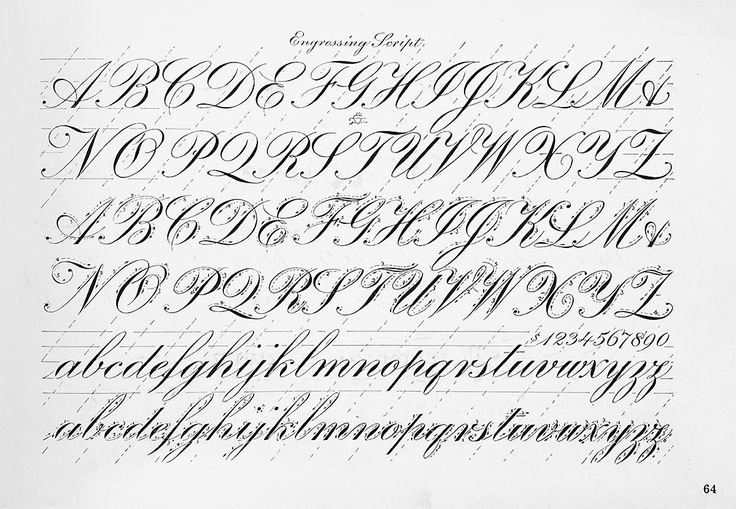 Engrossing Script.
ABCDEFGHIJKLM&
NOPQRSTUVWXYZ
ABCDEFGHIJKLM&
NOPQRSTUVWXYZ
$1234567890
abcdefghijklmnopqrstuvwxyzz
abcdefghijklmnopqrstuvwxyzz
64